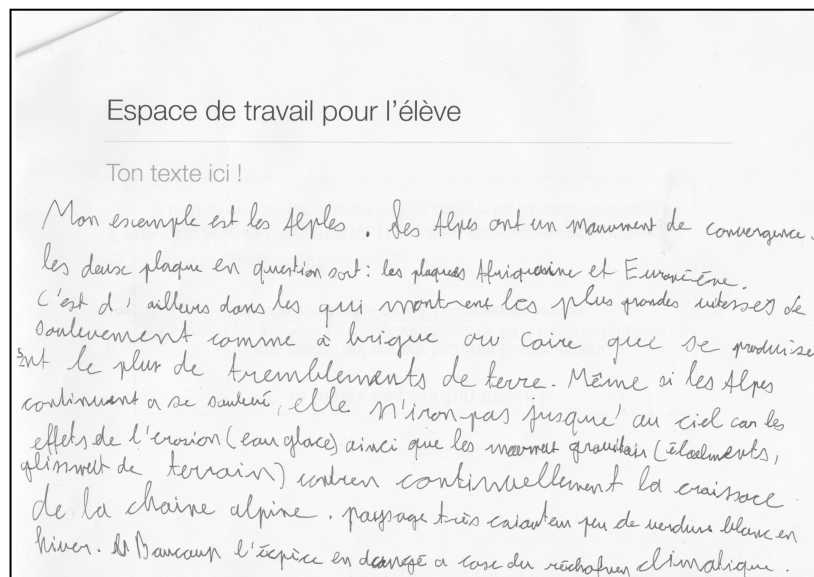 Espace de travail pour l'élève
Ton texte ici !
Mon escemple est les Alples. Les Alpes ont un mouvument de convergence.
les deuse plaque en question sont : les plaques Afriquaine et Euraciène.
C'est d'ailleurs dans les qui montrent les plus grandes vitesses de
soulevement comme à brigue ou Coire que se produise
nt le plus de tremblements de terre. Même si les Alpes
continuent a se soulevé, elle n'iron pas jusque' au ciel car les
effets de l'erosion (eau glace) ainci que les gravitair (
glissment de terrain) contren continuellement la craissace
de la chaine alpine. paysage très peu de verdure blanc en
hiver. Baucaup l'éspèce en a case du climatique.